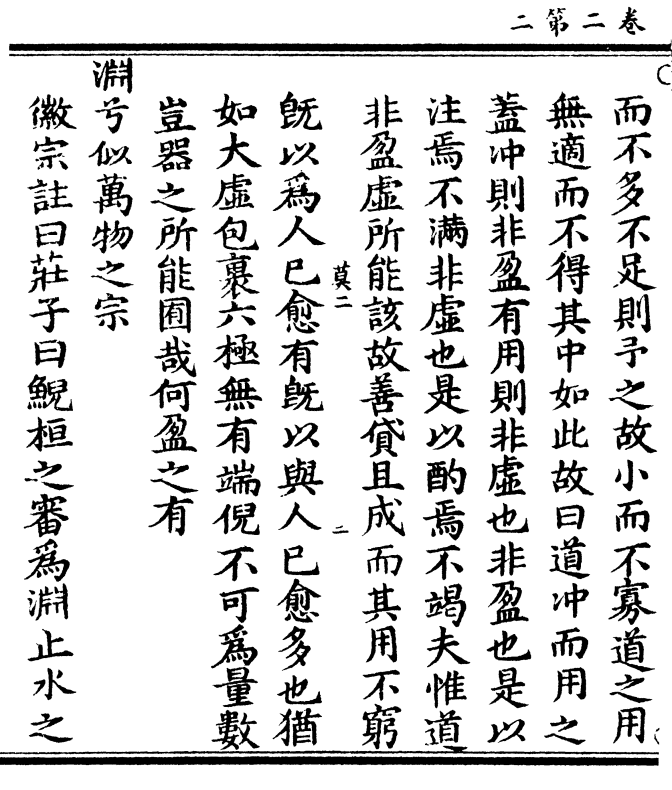 卷二第二
而不多不足則予之故小而不寡道之用
無適而不得其中如此故曰道冲而用之
蓋冲則非盈有用則非虛也非盈也是以
注焉不滿非虛也是以酌焉不竭夫惟道
非盈虛所能該故善貸且成而其用不窮
莫二
二
旣以爲人已愈有旣以與人已愈多也猶
如大虛包裹六極無有端倪不可爲量數
豈器之所能囿哉何盈之有
淵兮似萬物之宗
徽宗註曰莊子曰鯢桓之審爲淵止水之